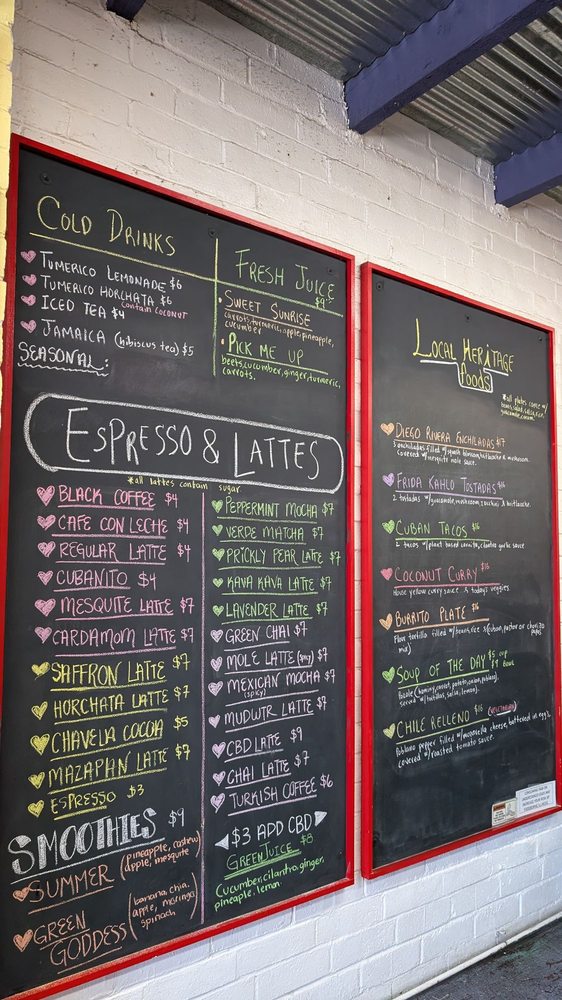 COLD DRINKS
TUMERICO LEMONADE $6
TUMERICO HORCHATA $6
Contain COCONUT
ICED TEA $4
JAMAICA (hibiscus tea) $5
SEASONAL:
FRESH JUICE
$9
SWEET SUNRISE
carrots, turmeric, apple, pineapple,
cucumber
PICK ME UP
beets, cucumber, ginger, turmeric,
carrots.
ESPRESSO & LATTES
*all lattes contain sugar
BLACK COFFEE $4
CAFE CON LECHE $4
REGULAR LATTE $4
CUBANITO $4
MESQUITE LATTE $7
CARDAMOM LATTE $7
SAFFRON LATTE $7
HORCHATA LATTE $7
CHAVELA COCOA $5
MAZAPAN LATTE $7
ESPRESSO $3
PEPPERMINT MOCHA $7
VERDE MATCHA $7
PRICKLY PEAR LATTE $7
KAVA KAVA LATTE $7
LAVENDER LATTE $7
GREEN CHAI $7
MOLE LATTE (spicy) $7
MEXICAN MOCHA $7
(spicy)
MUDWTR LATTE $7
CBD LATTE $9
CHAI LATTE $7
TURKISH COFFEE $6
$3 ADD CBD
SMOOTHIES $9
SUMMER (pineapple, cashew,
apple, mesquite
GREEN
GODDESS (banana, chia,
apple, moringa
spinach,
GREEN JUICE $8
Cucumber, cilantro, ginger,
pineapple, lemon.
LOCAL HERITAGE
foods
*all plates come w/
beans, salad, salsa, rice,
DIEGO RIVERA ENCHILADAS $17
3 enchiladas filled w/squash blossom, huitlacoche & mushroom.
Covered w/mesquite mole sauce.
FRIDA KAHLO TOSTADAS $16
2 tostadas w/guacamole, mushroom, zucchini & huitlacoche.
CUBAN TACOS $16
2 tacos w/plant based carnitas, cilantro garlic sauce
COCONUT CURRY $16
House yellow curry sauce & today's veggies.
BURRITO PLATE $16
Flour tortilla filled w/beans, rice &
SOUP OF THE DAY $6 cup
$9 Bowl
served w/tortillas, salsa, lemon.
CHILE RELLENO $16 (VEGETARIAN)
Poblano pepper filled w/mozzarella cheese, battered in egg,
covered w/roasted tomato sauce.